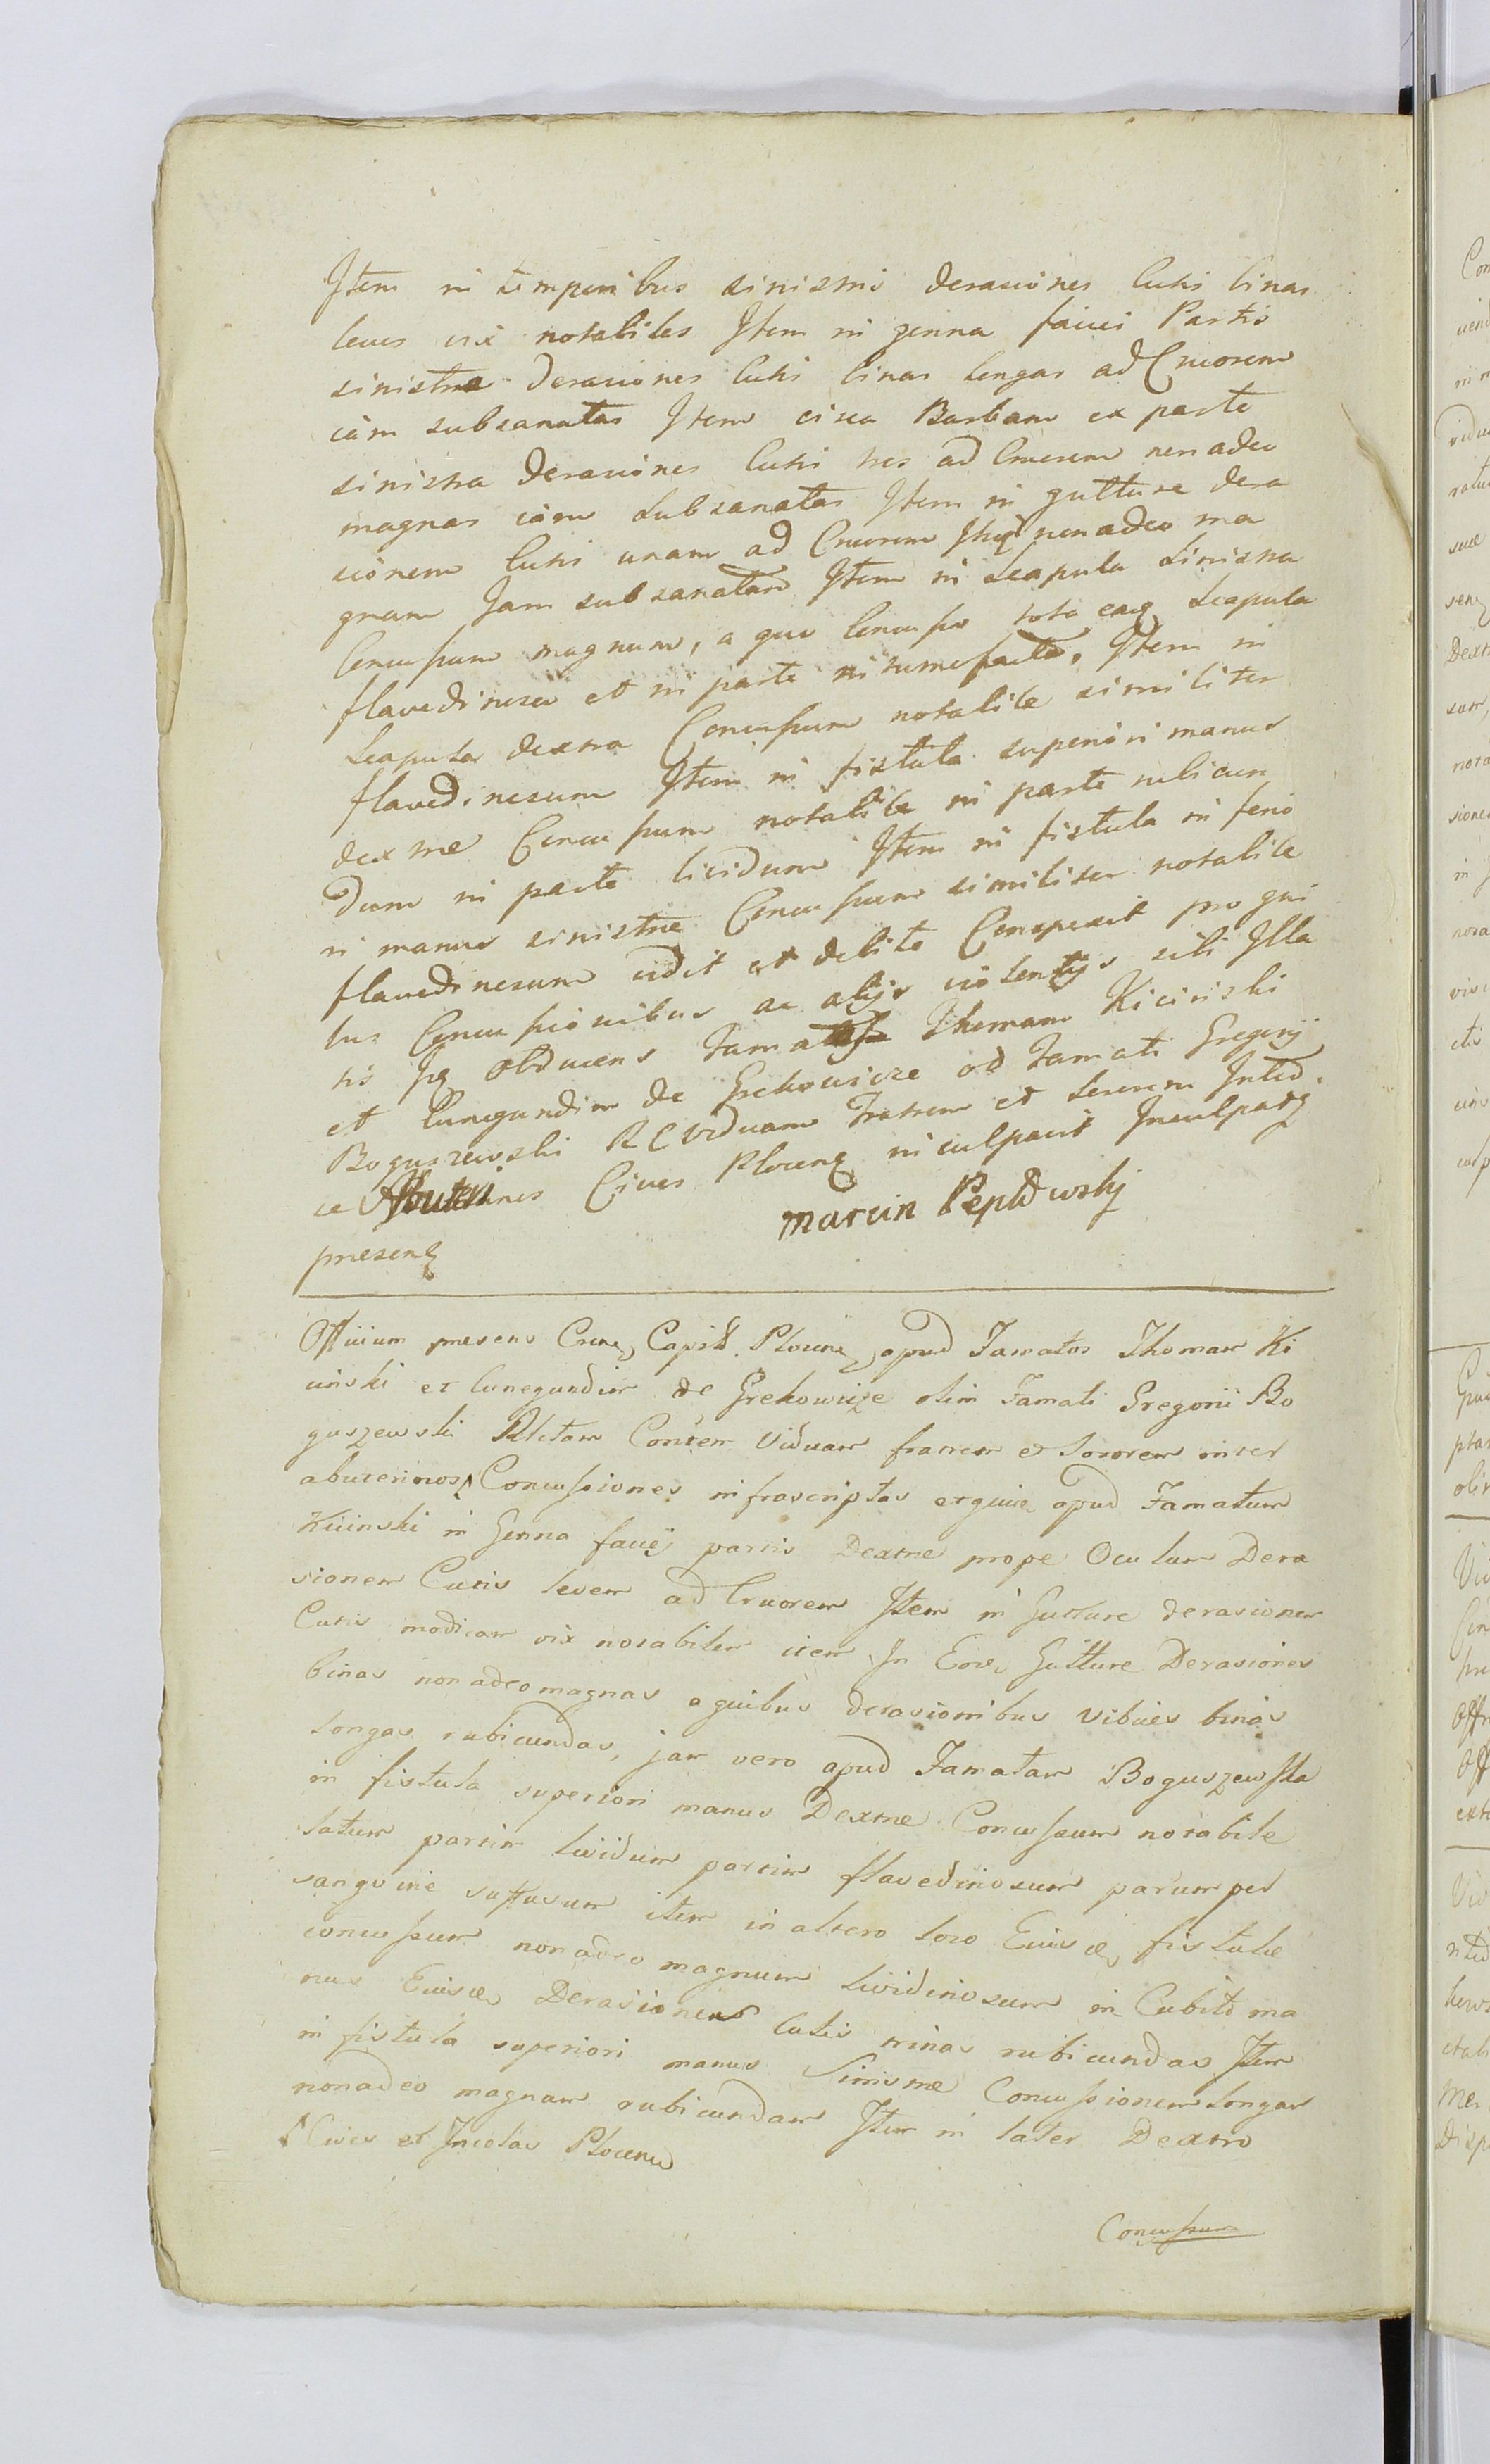 Item in temporibus sinistris derasiones Cutis binas
leves vix notabiles Item in genna faciei Partis
sinistrae derasiones Cutis binas longas ad Cruorem
iam subsanatas Item circa Barbam ex parte
sinistra derasiones Cutis tres ad Cruorem non adeo
magnas iam subsanatas Item in gutture dera
sionem Cutis unam ad Cruorem non adeo ma
gnam Jam subsanatam Item in Scapula Sinistra
Concussum magnum, a quo Concusso tota eaq Scapula
flavedinosa et in parte intumefacta, Item in
Scapula dextra Concussum notabile similiter
flavedinosum Item in fistula superiori manus
dextrae Concussum notabile in parte rubicun
dum in parte lividum Item in fistula inferio
ri manus sinistrae Concussum similiter notabile
flavedinosum vidit et debite Conspexit pro qui
bus Concussionibus ac alijs violentijs sibi Illa
tis Obducens Thomam Kicinski
et Cunegundim de Grekowicze od Famati Gregorij
Boguszewski R C Viduam Fratrem et Sororem
Cives Plocen inculpavit Inculpatq
presens
Marcin Peplowskj
Officium presens Crine Capit Plocen apud Famatos Thomam Ki
cinski et Cunegundim de Grekowicze olim Famati Gregorii Bo
guszewski Rlctam Contem Viduam fratrem et Sororem inter
abuterinos Concussiones infrascriptas etquie apud Famatum
Kicinski in Genna faciej partis Dextrae prope Oculum Dera
sionem Cutis levem ad Cruorem Item in Gutture derasionem
Cutis modicam vix notabilem item In Eode Gutture Derasiones
binas non adeo magnas a quibus derasionibus vibices binas
longas rubicundas, jam vero apud Famatam Boguszewska
in fistula superiori manus Dextrae Concussum notabile
latum partim lividum partim flavedinosum parumper
sangvine suffusum item in altero loco Eiusde fistulae
concussum non adeo magnum lividinosum in Cubito ma
nus Eiusde Derasiones Cutis trinas rubicundas Item
in fistula superiori manus Sinistrae Concussionem longam
nonadeo magnam rubicundam Item in latere Dextro
Cives et Incolas Plocens
Concussum